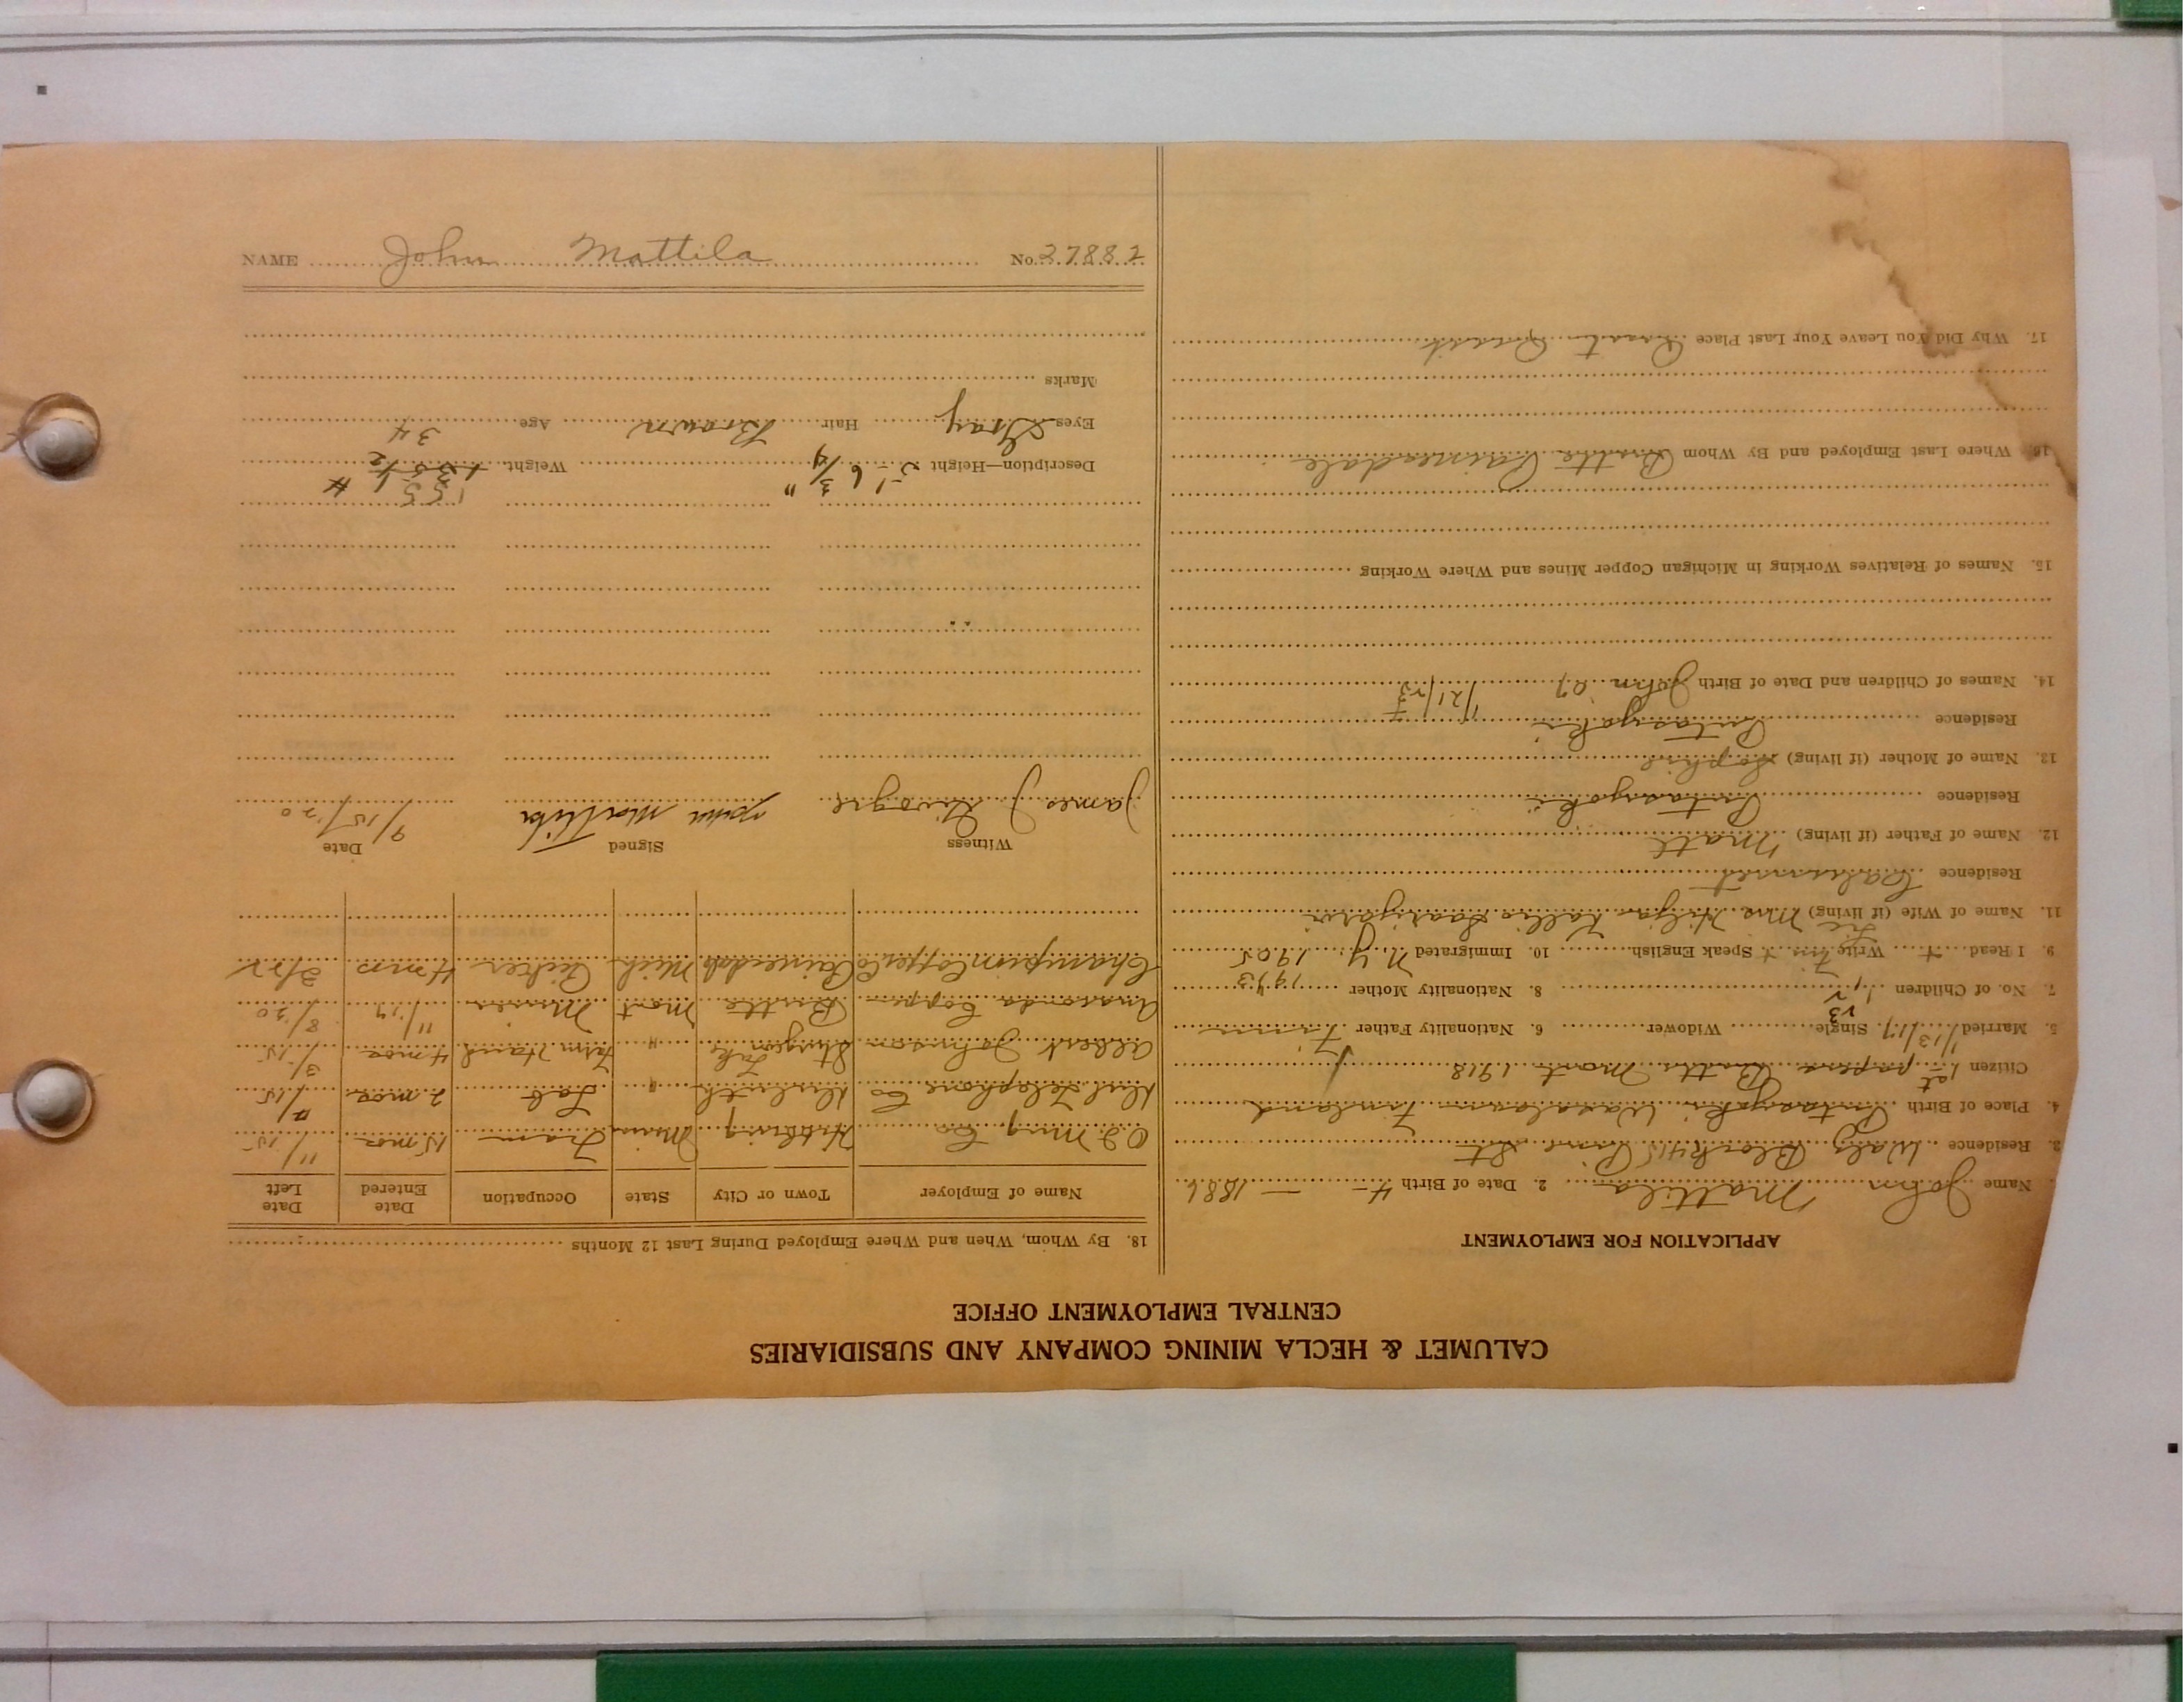 CALUMET & HECLA MINING COMPANY AND SUBSIDIARIES
CENTRAL EMPLOYMENT OFFICE
APPLICATION FOR EMPLOYMENT
Name John Mattila 2. Date of Birth 4 – – 1886
3. Residence Block 415 Pine St
4. Place of Birth Finland
Citizen 1st papers Butte Mont. 1918
5. Married 1/13/17 Single Widower 6. Nationality Father Finn
7. No. of Children 8. Nationality Mother
9. I Read + Write Finn + Speak English 10. Immigrated N.Y. 1905
11. Name of Wife (if living) Mrs Hilja Kallio Saarijarvi
Residence Calumet
12. Name of Father (if living) Matt
Residence
13. Name of Mother (if living) Sophie
Residence
14. Names of Children and Date of Birth John
15. Names of Relatives Working in Michigan Copper Mines and Where Working
16. Where Last Employed and By Whom Butte Painesdale
17. Why Did You Leave Your Last Place
18. By Whom, When and Where Employed During Last 12 Months
Name of Employer Town or City State Occupation Date Entered Date Left
O I Mng Co Hibbing Minn Tram 15 mos 11/15
Dul Telephone Co Duluth " Lab 2 mos /15
Albert Johnson Sturgeon Lake " Farm Hand 4 mos 3/15
Anaconda Copper Butte Mont Miner 11/17 8/20
Champion Copper Co Painesdale Mich Picker 4 mos 2/22
Witness Signed Date
James J John Mattila 9/15/20
Description—Height 5'- 6 3/4" Weight 155 #
Eyes Gray Hair Brown Age 34
Marks
NAME John Mattila No. 27882